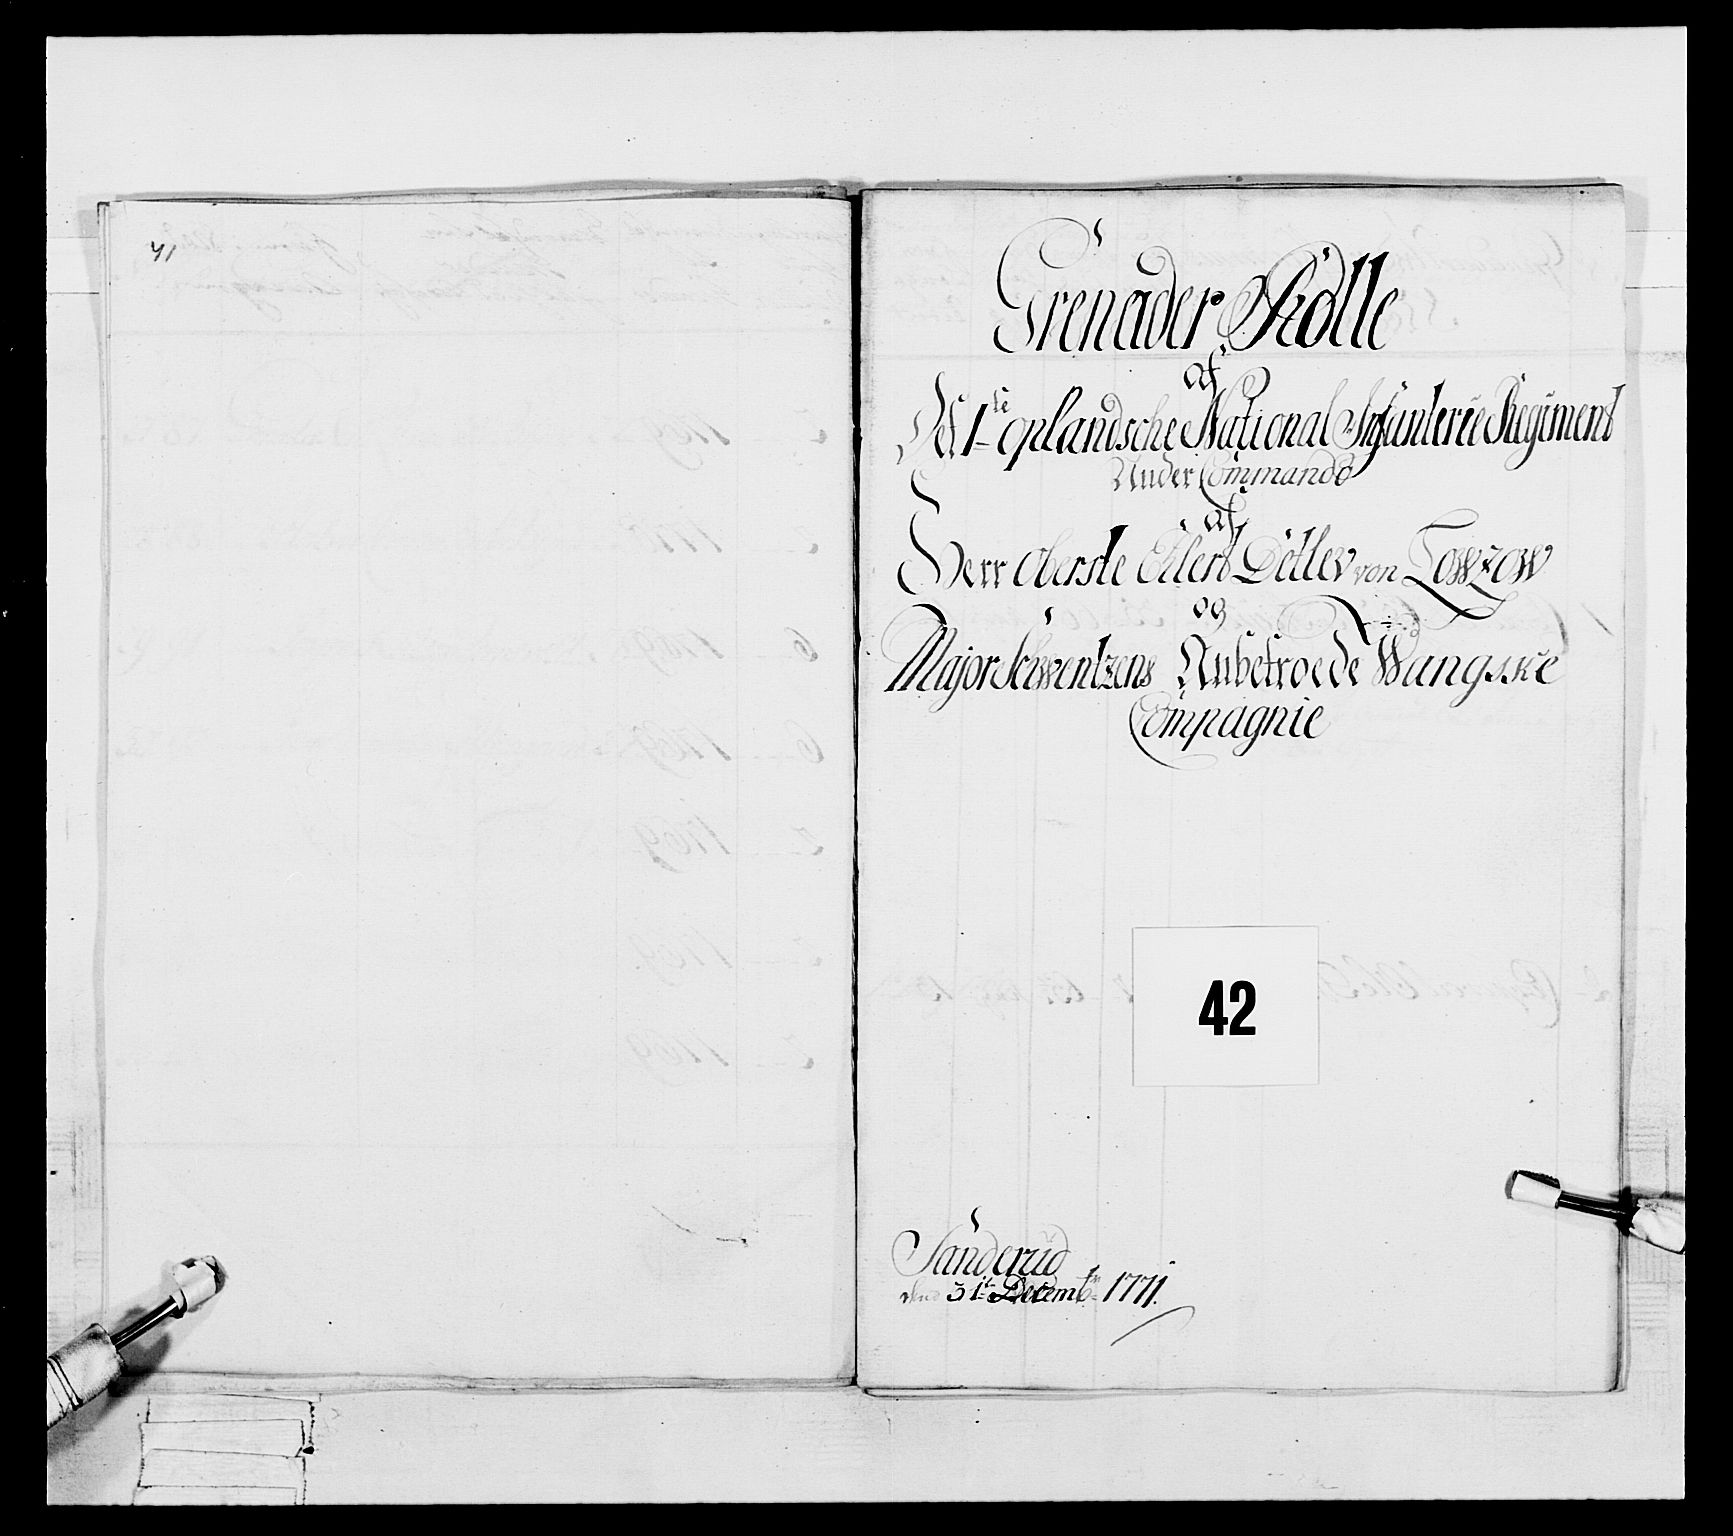 41
Grenader Rolle
af
Det 1te oplandsche National Infanterie Regiment
Under Commando
af
Herr Oberste Eilert Detlev von Lowzow
og
Major Schwentzens Wangske
Compagnie
42
Sanderud
den 31te Decembr 1771.